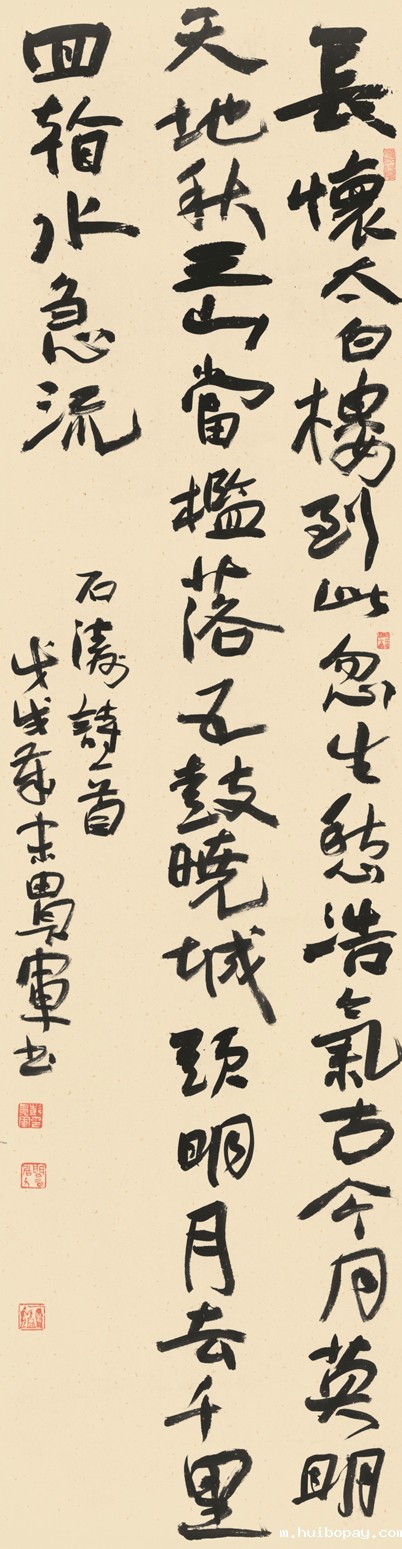 長懷太白樓到此忽生愁浩氣古今月英明
天地秋三山當檻落五鼓曉城頭明月去千里
回翰水急流
石濤詩一首
戊戌年末軍書
m.huibopay.com